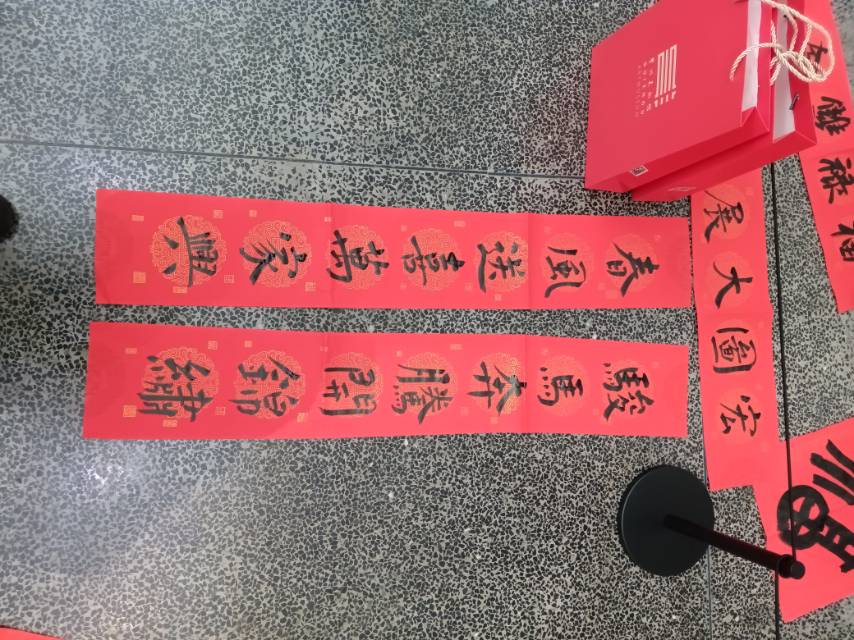 宏圖大展
駿馬奔騰開錦繡
春風送喜萬家興
福祿